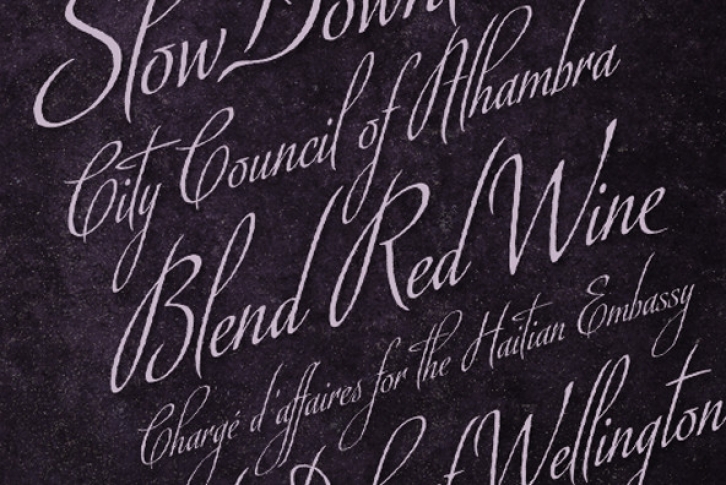 Slow Down
City Council of Alhambra
Blend Red Wine
Chargé d'affaires for the Haitian Embassy
of Wellington